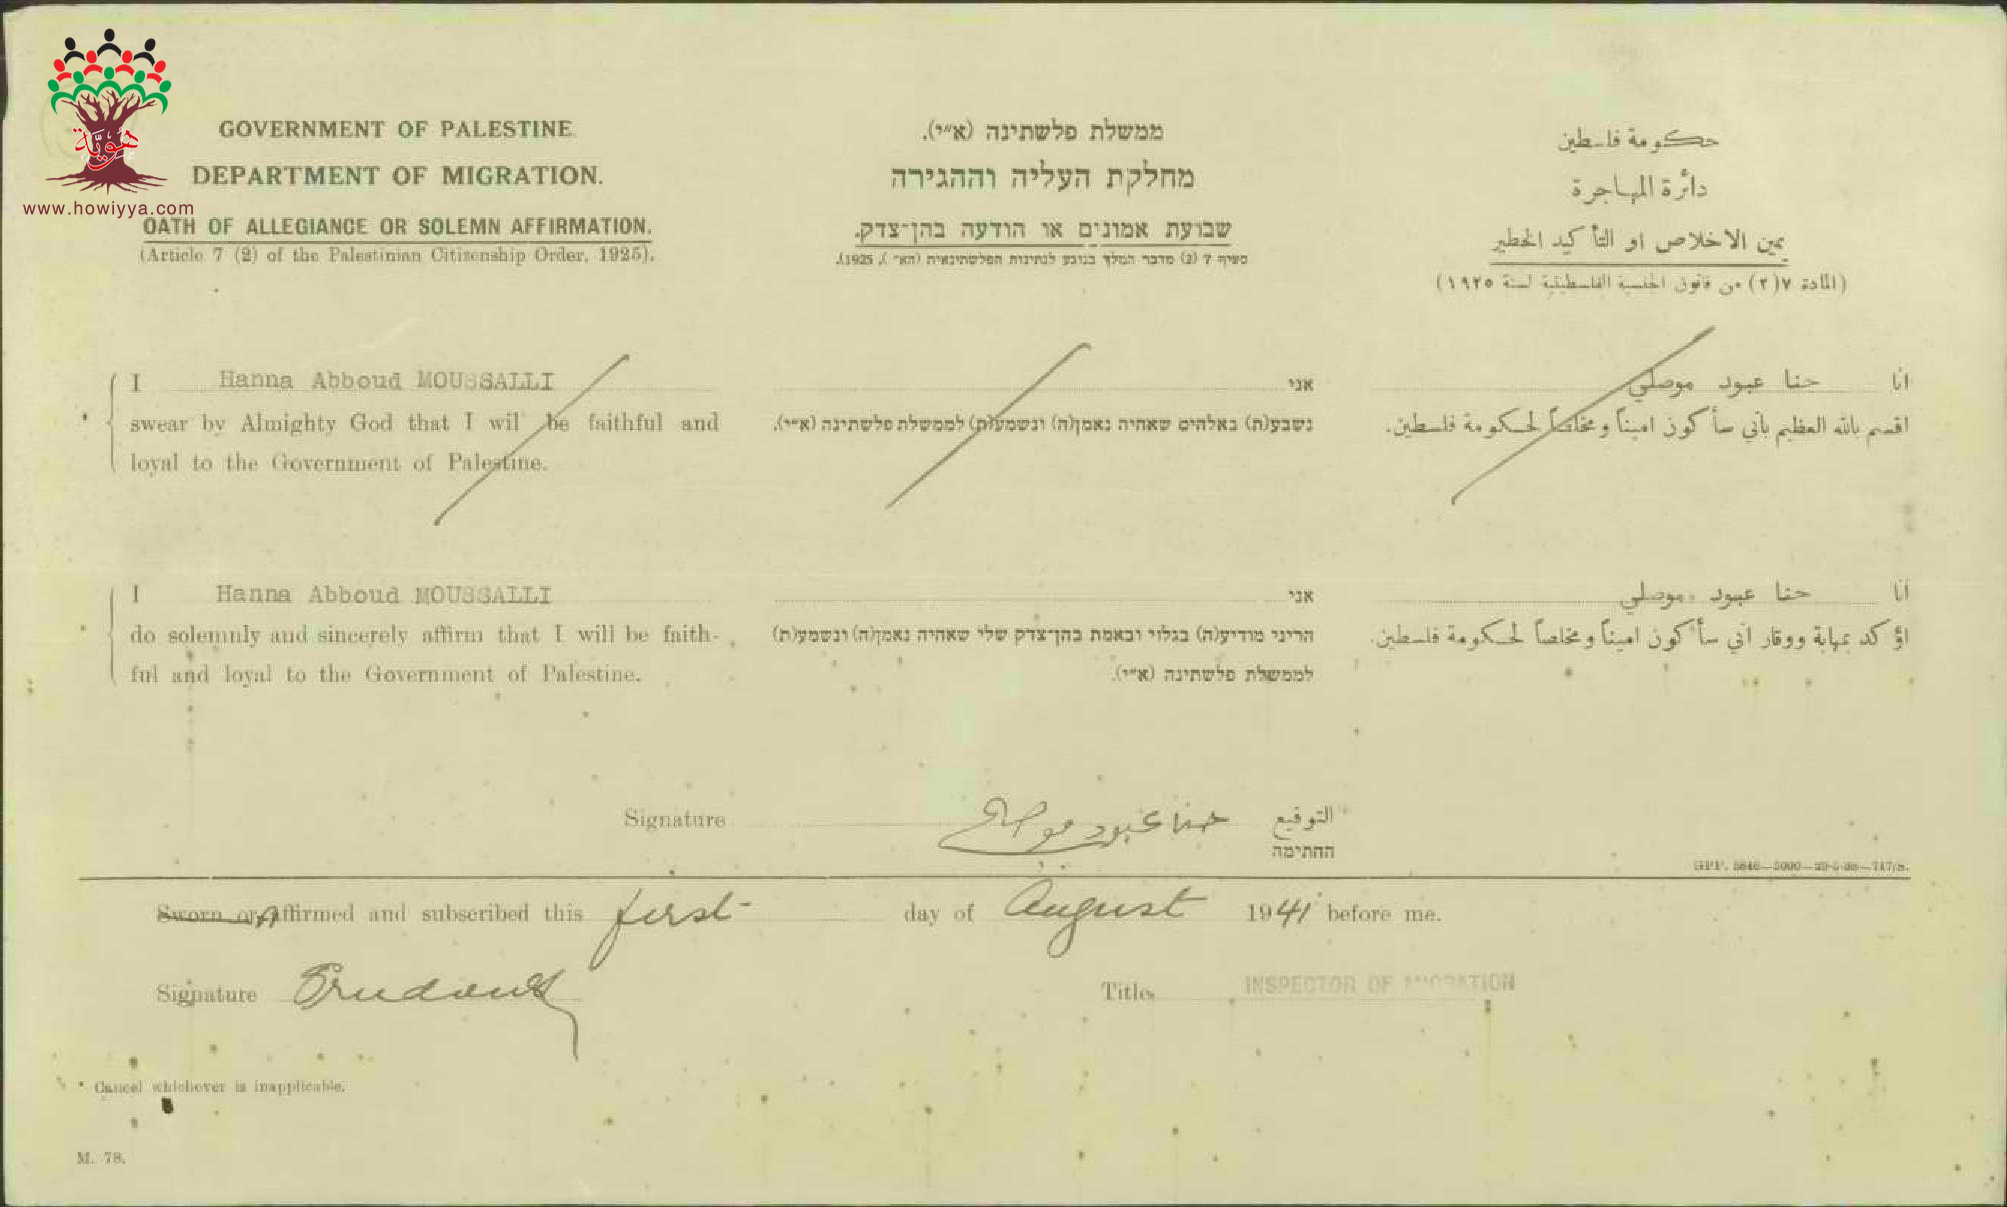 هُوِيَّة
www.howiyya.com
GOVERNMENT OF PALESTINE.
DEPARTMENT OF MIGRATION.
OATH OF ALLEGIANCE OR SOLEMN AFFIRMATION.
(Article 7 (2) of the Palestinian Citizenship Order, 1925).
ממשלת פלשתינה (א״י).
מחלקת העליה וההגירה
שבועת אמונים או הודעה בהן־צדק.
סעיף 7 (2) מדבר המלך בנוגע לנתינות הפלשתינאית (הא״י), 1925).
حكومة فلسطين
دائرة المهاجرة
يمين الاخلاص او التأكيد الخطير
(المادة ٧(٢) من قانون الجنسية الفلسطينية لسنة ١٩٢٥)
I Hanna Abboud MOUSSALLI
swear by Almighty God that I wil be faithful and
loyal to the Government of Palestine.
אני
נשבע(ת) באלהים שאהיה נאמן(ה) ונשמע(ת) לממשלת פלשתינה (א״י).
انا حنا عبود موصلي
اقسم بالله العظيم بأني سأكون اميناً ومخلصاً لحكومة فلسطين.
I Hanna Abboud MOUSSALLI
do solemnly and sincerely affirm that I will be faith-
ful and loyal to the Government of Palestine.
אני
הריני מודיע(ה) בגלוי ובאמת בהן־צדק שלי שאהיה נאמן(ה) ונשמע(ת)
לממשלת פלשתינה (א״י).
انا حنا عبود موصلي
اؤكد بمهابة ووقار اني سأكون اميناً ومخلصاً لحكومة فلسطين.
Signature حنا عبود موصلي التوقيع
החתימה
Sworn or Affirmed and subscribed this first day of August 1941 before me.
Signature Title INSPECTOR OF MIGRATION
* Cancel whichever is inapplicable.
M. 78.